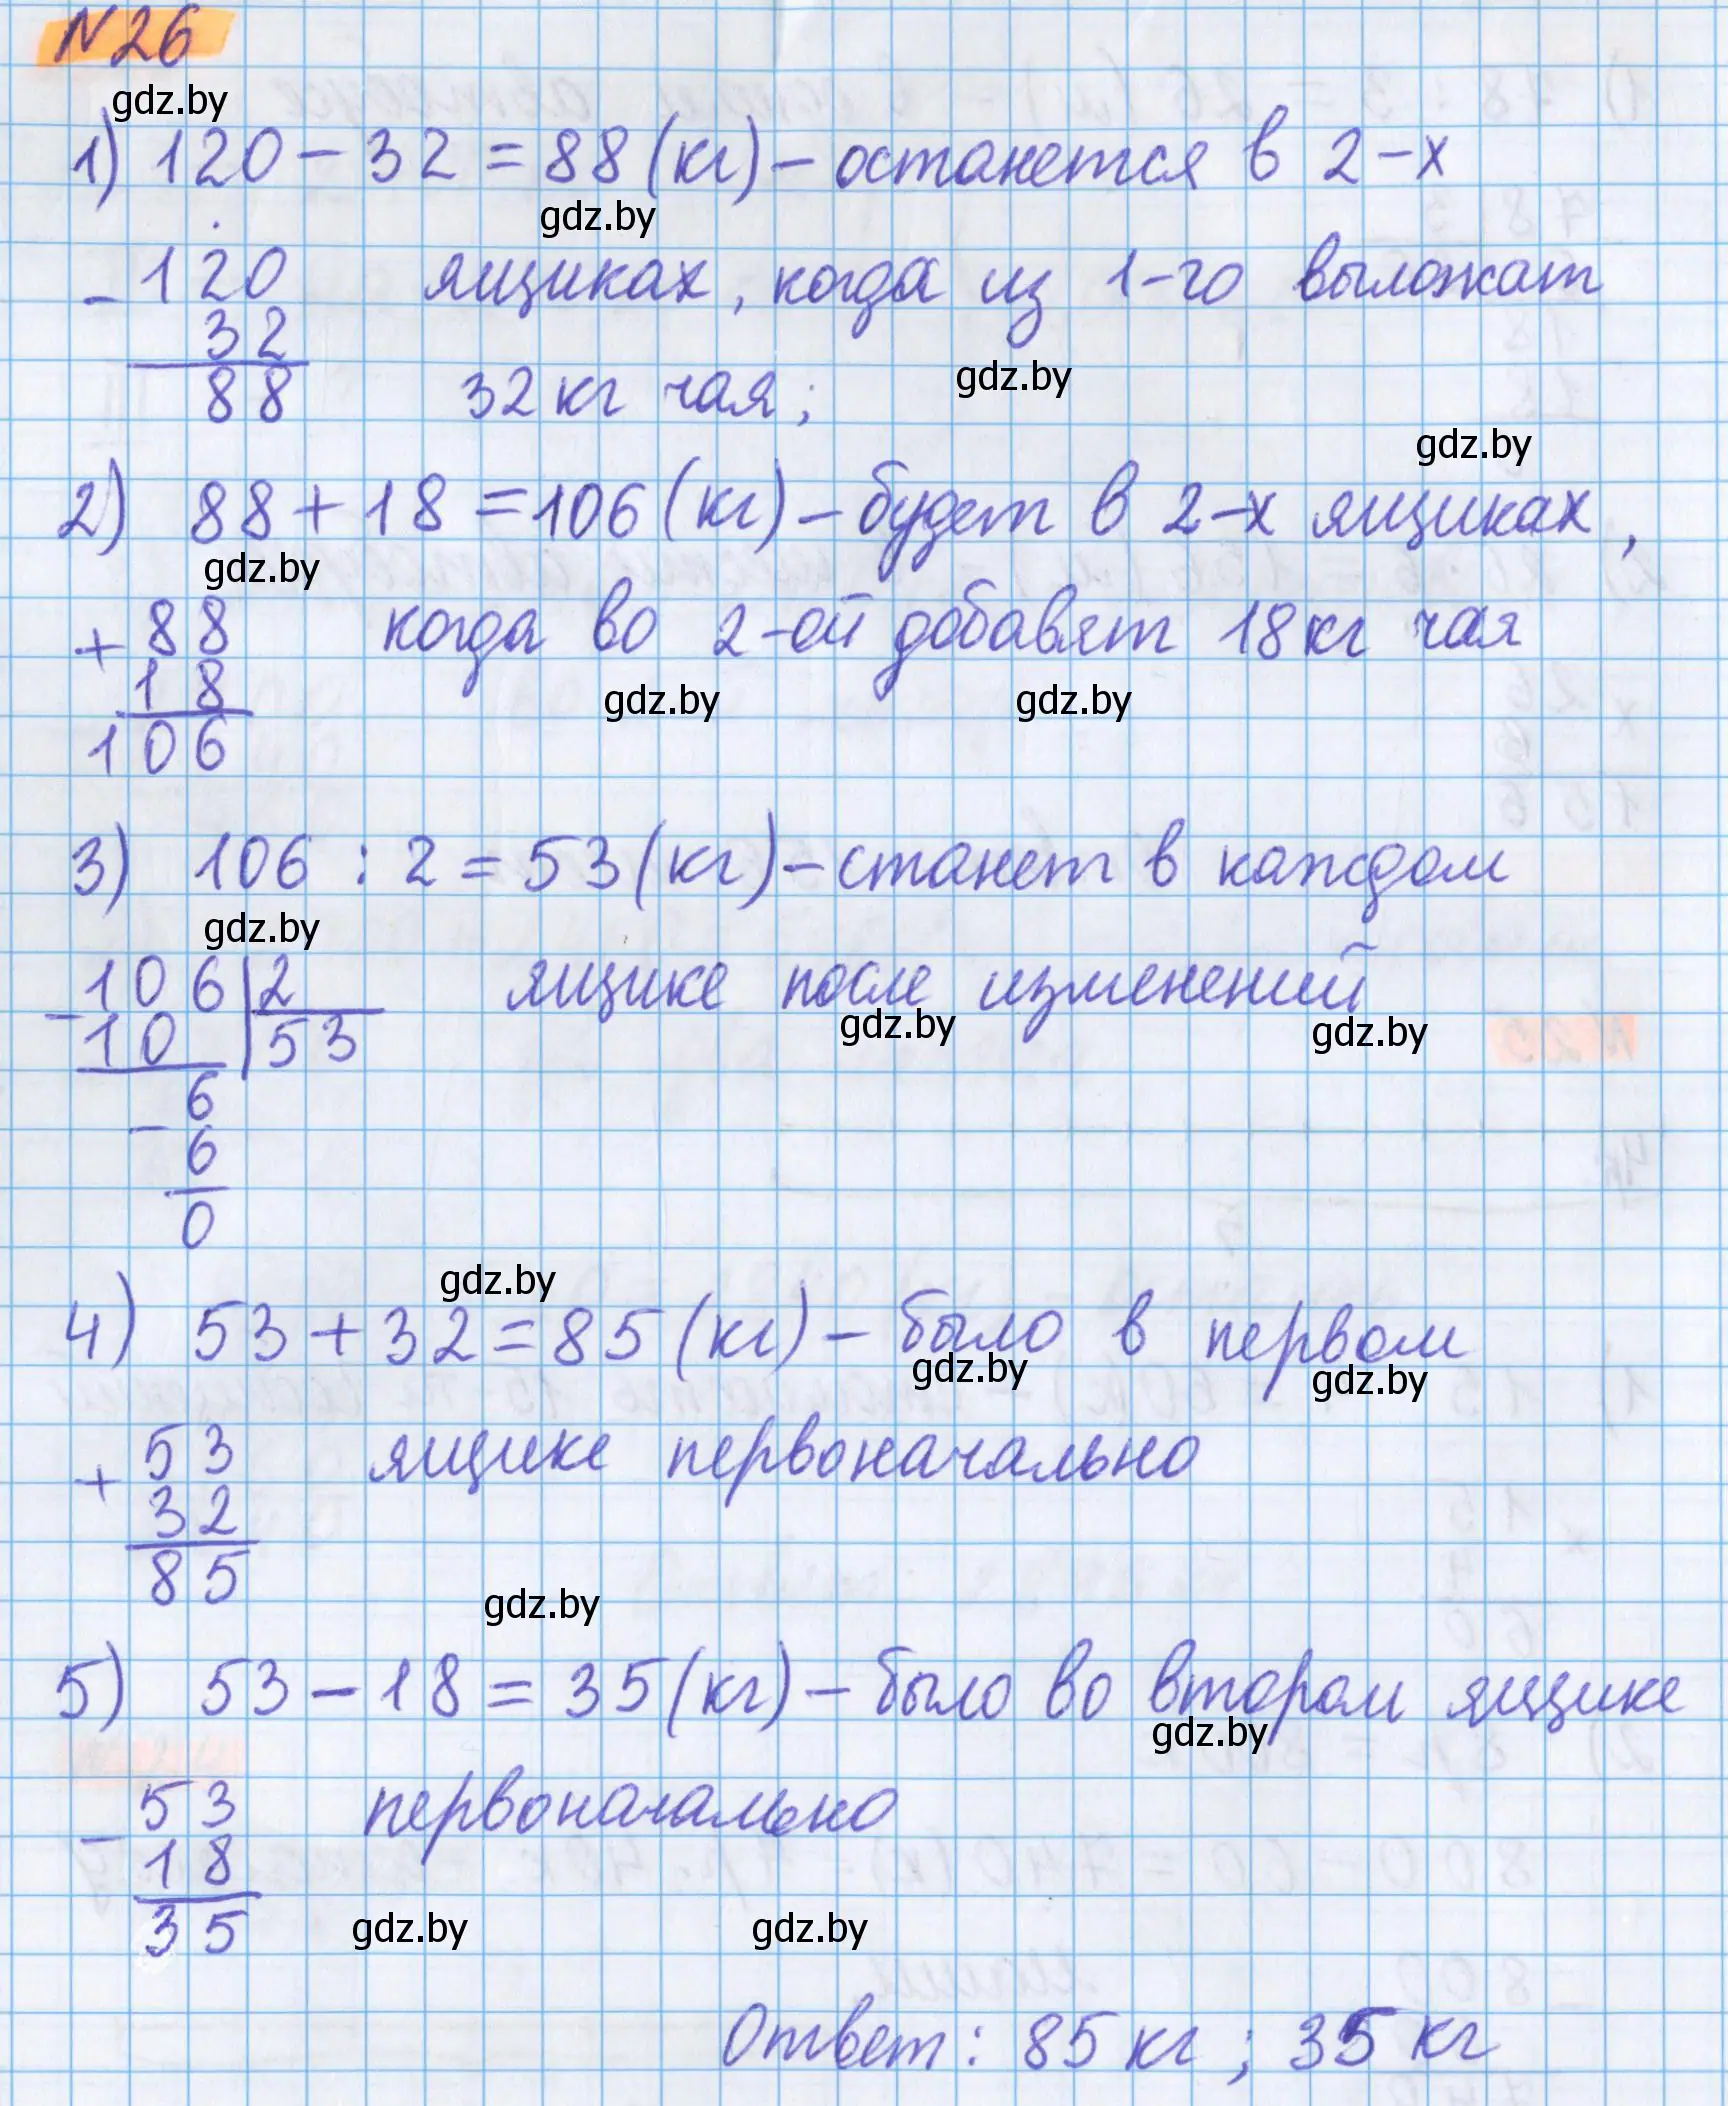 N26
gdz.by
1) 120 - 32 = 88 (кг) - останется в 2-х
gdz.by
- 120 ящиках, когда из 1-го выложат
32
88 32 кг чая;
gdz.by
gdz.by
2) 88 + 18 = 106 (кг) - будет в 2-х ящиках,
gdz.by
+ 88 когда во 2-ой добавят 18 кг чая
18
gdz.by gdz.by
106
3) 106 : 2 = 53 (кг) - станет в каждом
gdz.by
- 106 2 ящике после изменений
10 53
gdz.by gdz.by
- 6
6
0
gdz.by
4) 53 + 32 = 85 (кг) - было в первом
gdz.by gdz.by
+ 53 ящике первоначально
32
85
gdz.by
5) 53 - 18 = 35 (кг) - было во втором ящике
gdz.by
- 53 первоначально
18
35
gdz.by gdz.by
Ответ: 85 кг; 35 кг